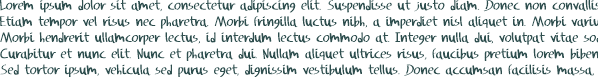 Lorem ipsum dolor sit amet, consectetur adipiscing elit. Suspendisse ut justo diam. Donec non convallis
Etiam tempor vel risus nec pharetra. Morbi fringilla luctus nibh, a imperdiet nisl aliquet in. Morbi variu
Morbi hendrerit ullamcorper lectus, id interdum lectus commodo at. Integer nulla dui, volutpat vitae so
Curabitur et nunc elit. Nunc et pharetra dui. Nullam aliquet ultrices risus, faucibus pretium lorem biben
Sed tortor ipsum, vehicula sed purus eget, dignissim vestibulum tellus. Donec accumsan facilisis massa,